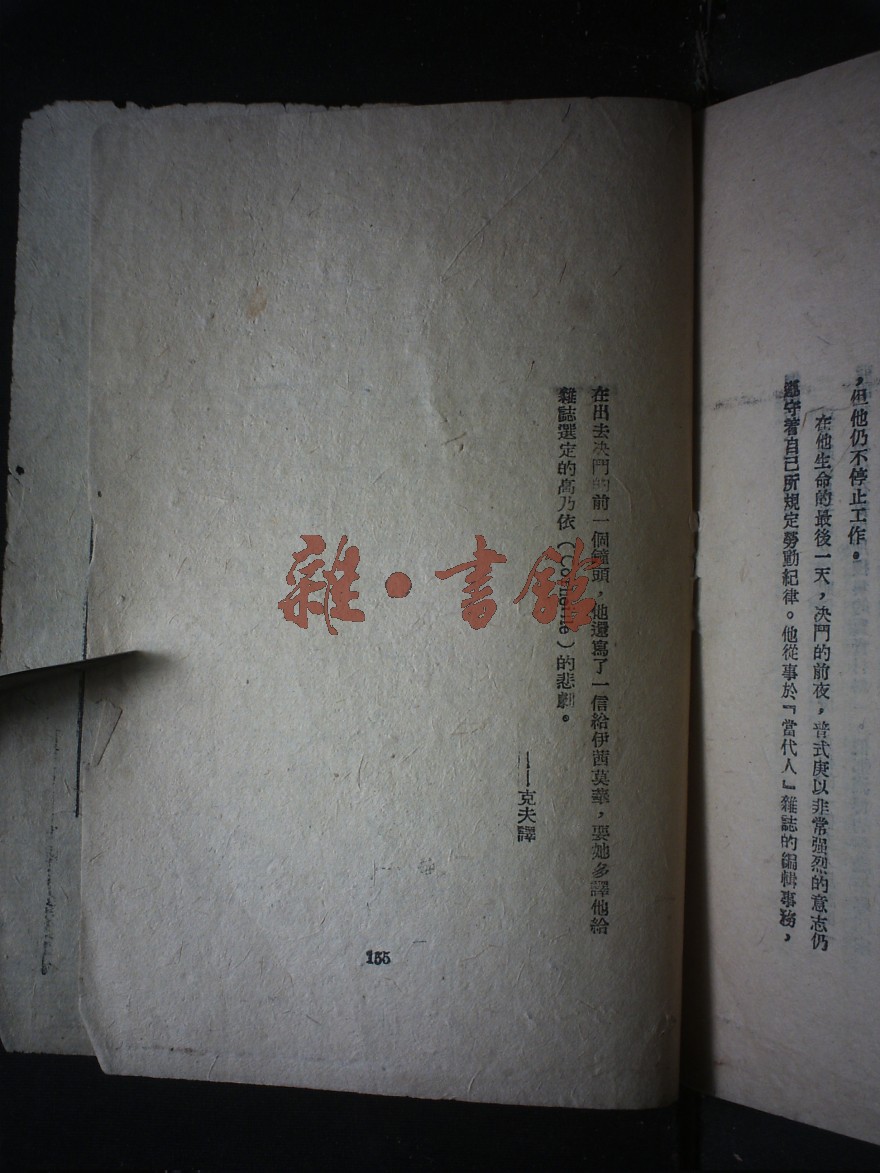 ，但他仍不停止工作。
在他生命的最後一天，决鬥的前夜，普式庚以非常强烈的意志仍
遵守着自己所規定勞動紀律。他從事於『當代人』雜誌的編輯事務，
在出去决鬥的前一個鐘頭，他還寫了一信給伊茜莫華，要她多譯他給
雜誌選定的高乃依（）的悲劇。
——克夫譯
155
雜·書館